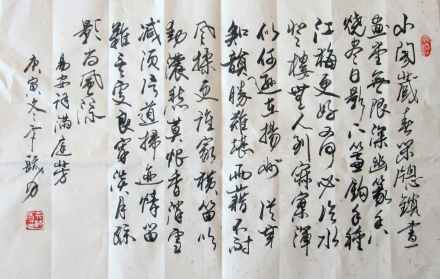 小閣藏春閑窗鎖晝
畫堂無限深幽篆香
燒盡日影下簾鉤手種
江梅更好又何必臨水
登樓無人到寂寥渾
似何遜在揚州從來
知韻勝難堪雨藉不耐
風揉更誰家橫笛吹
動濃愁莫恨香消雪
減須信道掃迹情留
難言處良宵淡月疏
影尚風流
易安詞滿庭芳
庚寅冬